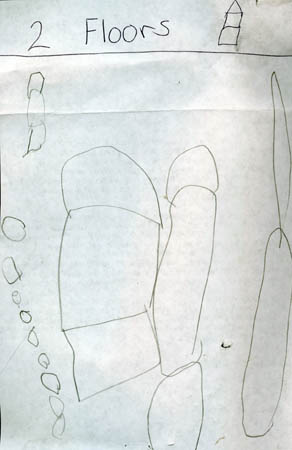 2 Floors